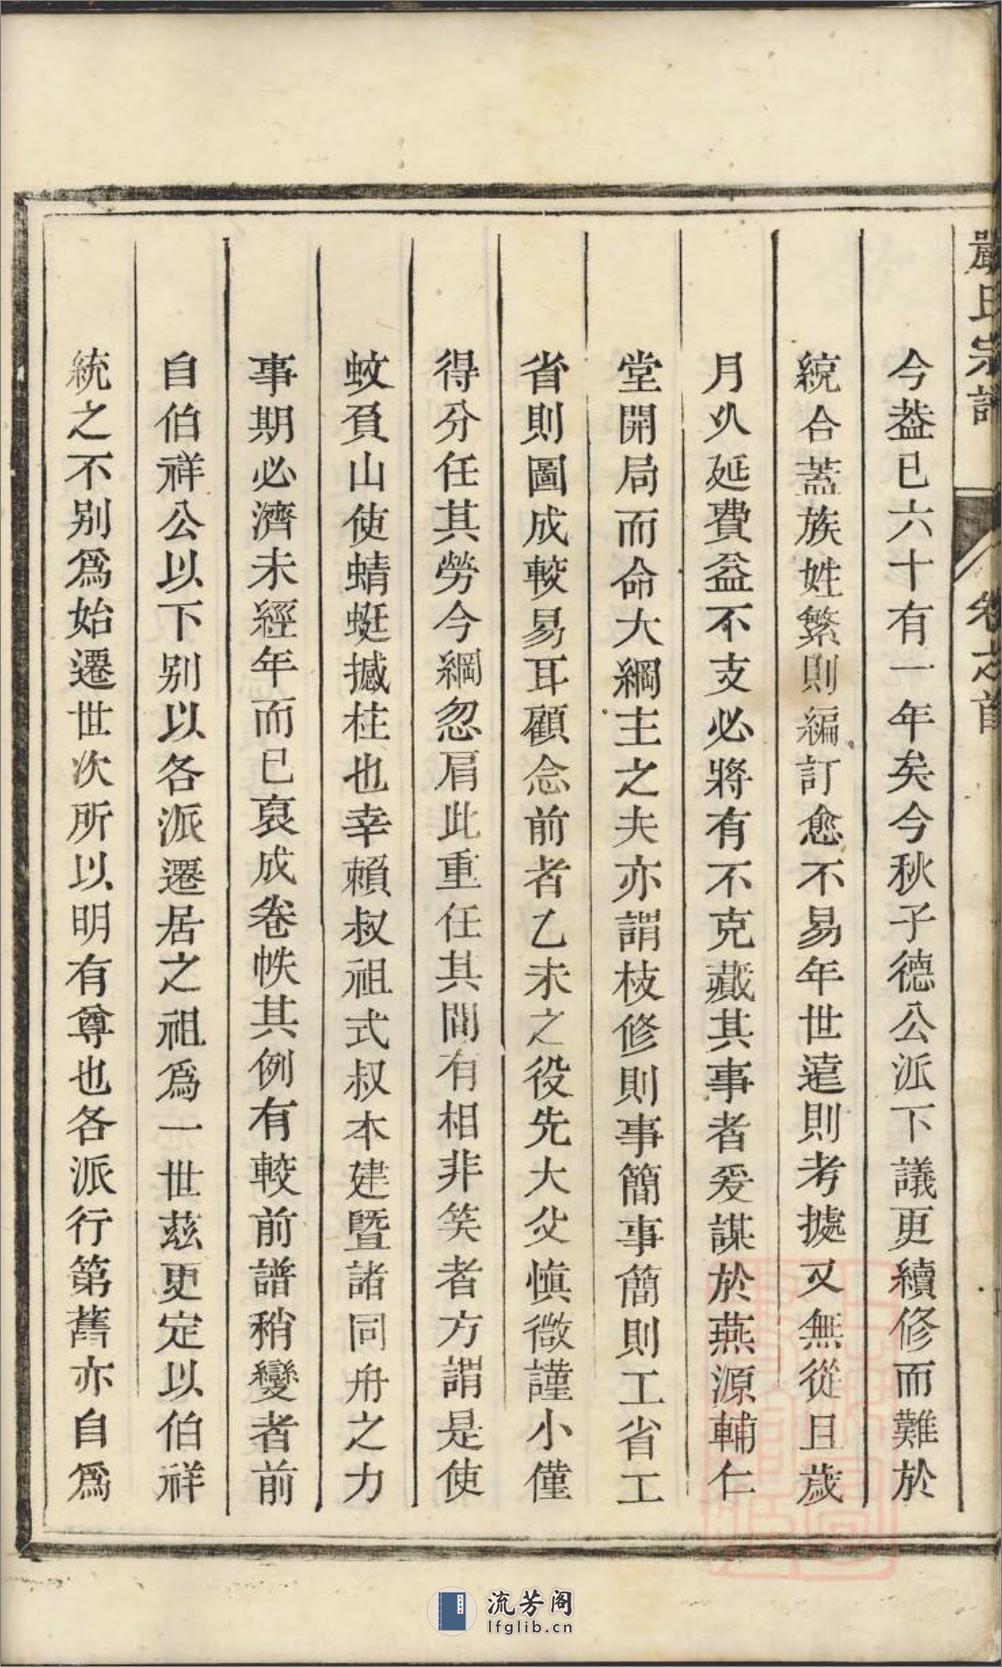 嚴氏宗譜 卷之首
今葢已六十有一年矣今秋子德公派下議更續修而難於
統合蓋族姓繁則編訂愈不易年世遠則考據又無從且歲
月久延費益不支必將有不克藏其事者爰謀於燕源輔仁
堂開局而命大綱主之夫亦謂枝修則事簡事簡則工省工
省則圖成較易耳顧念前者乙未之役先大父慎微謹小僅
得分任其勞今綱忽肩此重任其間有相非笑者方謂是使
蚊負山使蜻蜓撼柱也幸賴叔祖式叔本建暨諸同舟之力
事期必濟未經年而已裒成卷帙其例有較前譜稍變者前
自伯祥公以下别以各派遷居之祖爲一世茲更定以伯祥
統之不别爲始遷世次所以明有尊也各派行第舊亦自爲
流芳阁
lfglib.cn